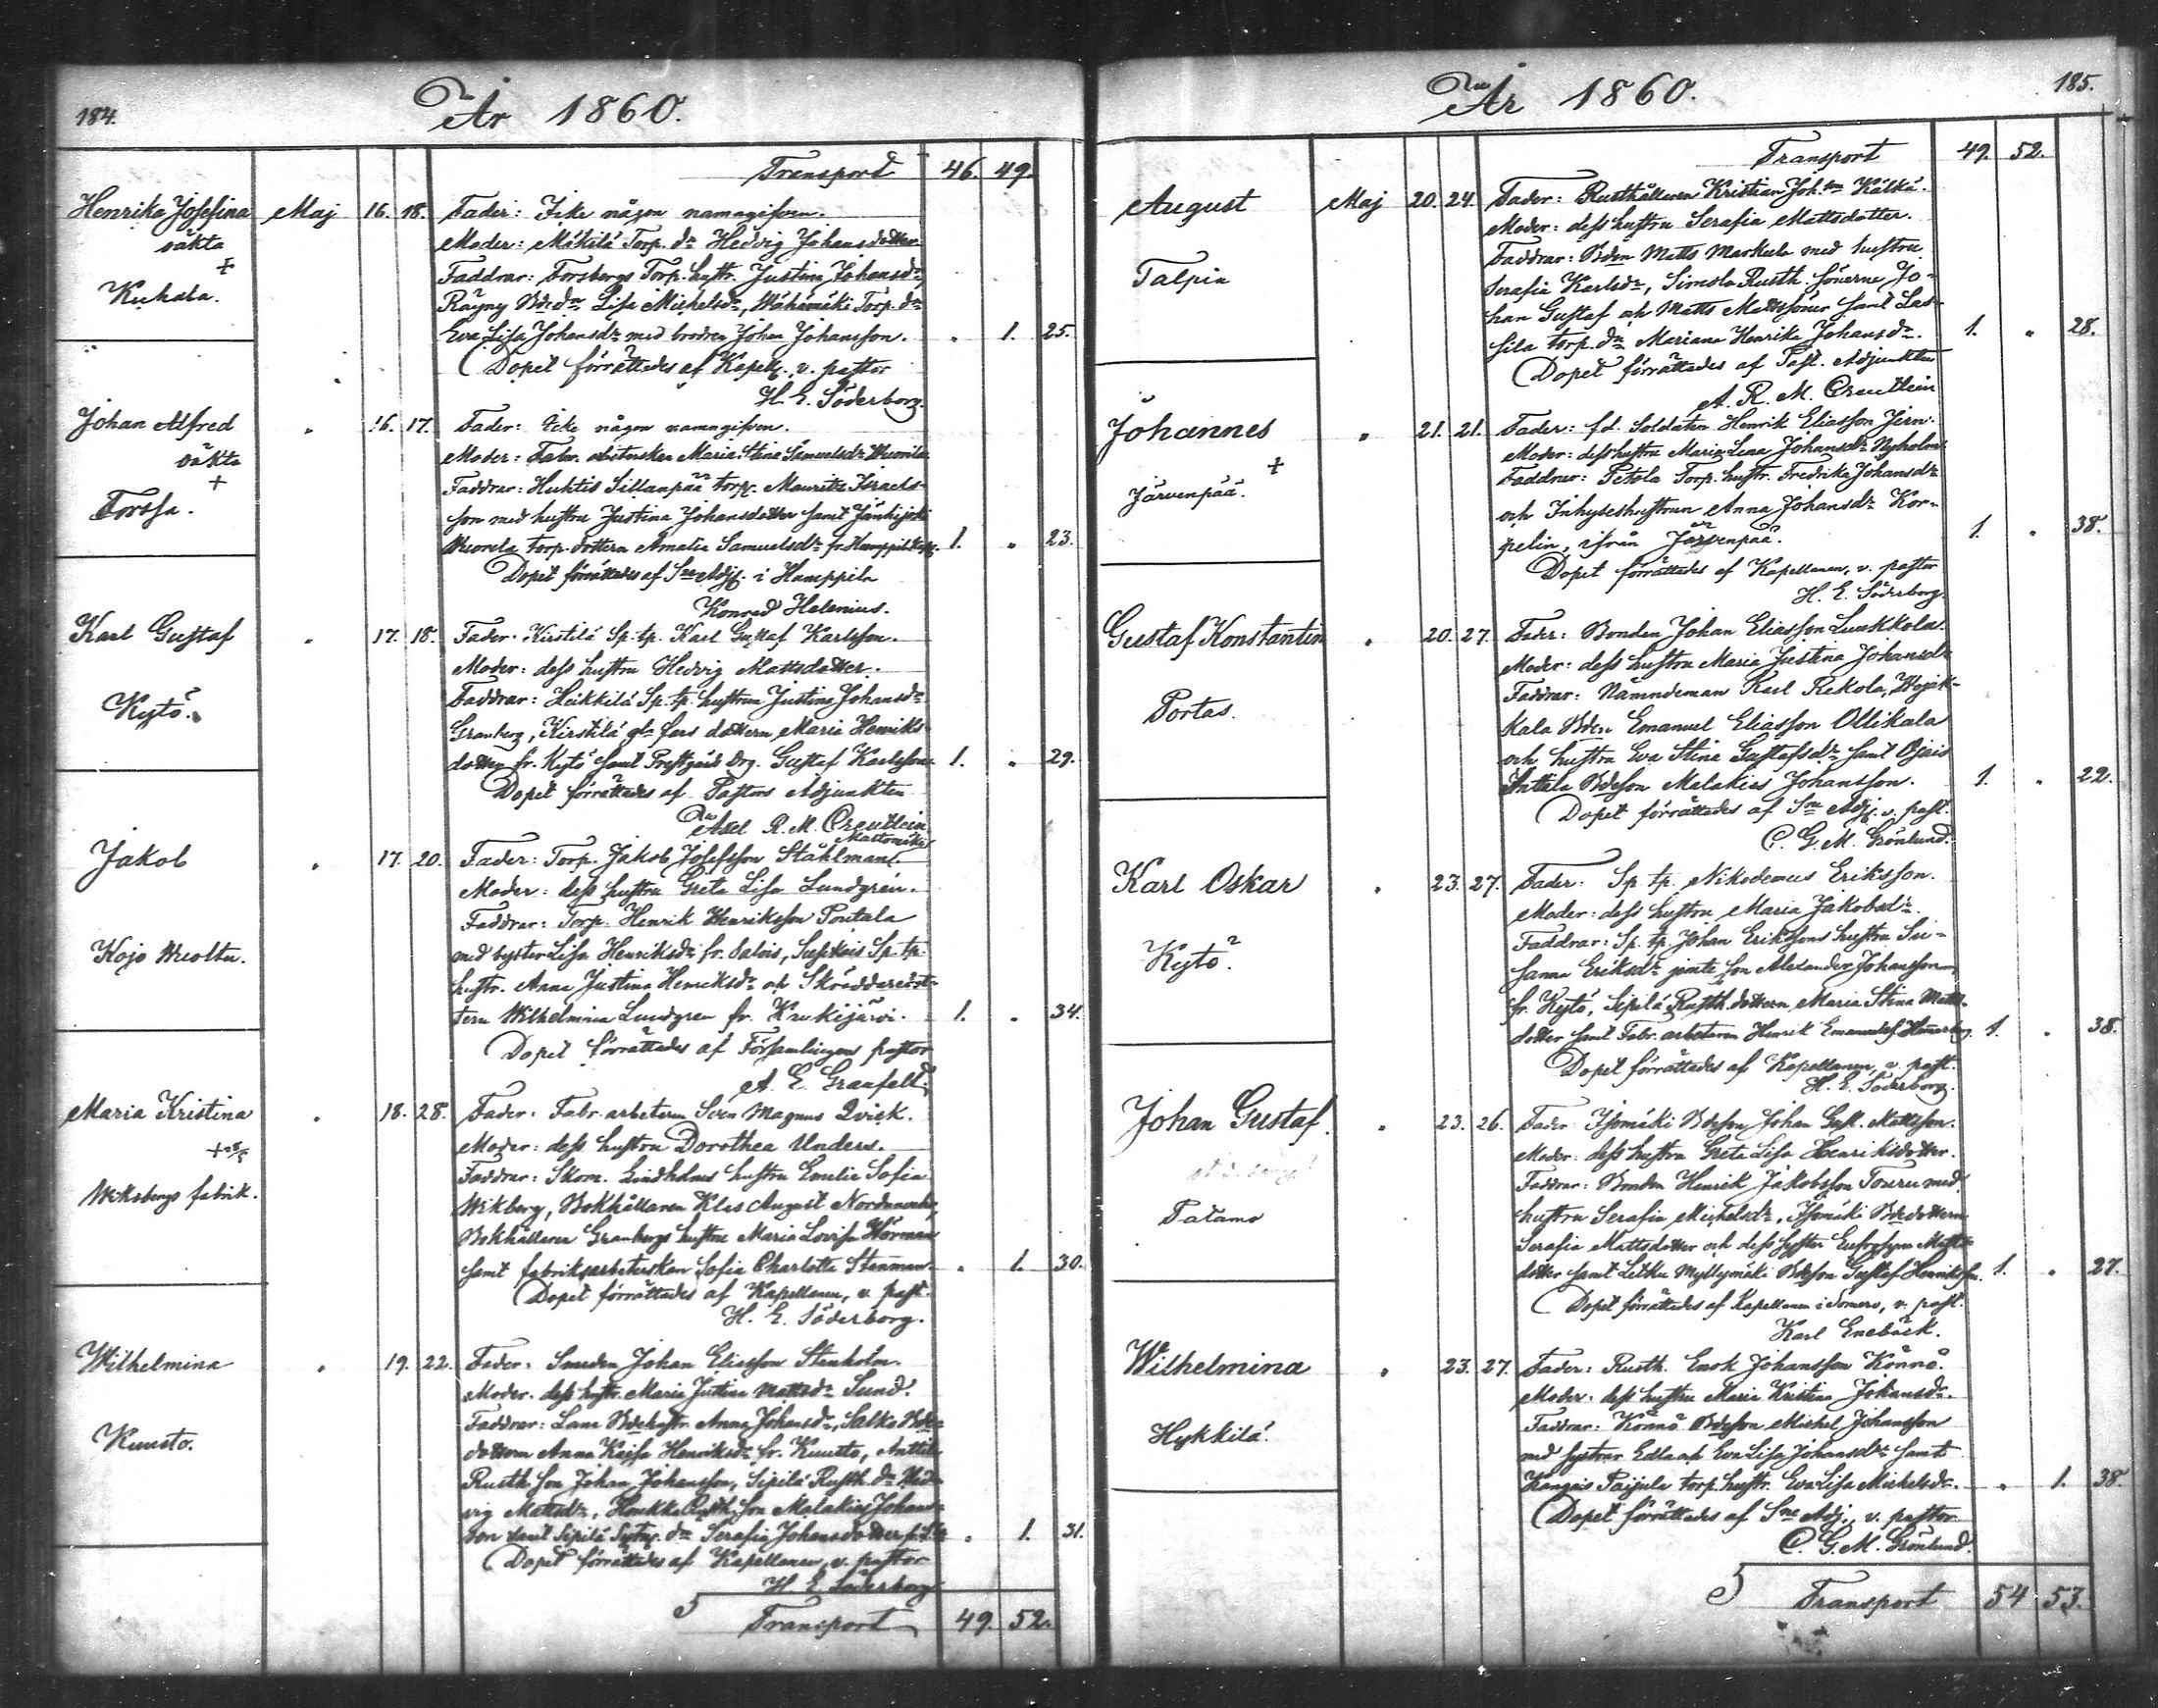 184.
År 1860.
Transport 46. 49.
Henrika Josefina Maj 16. 18. Fader: Icke någon namngifven.
oäkta
+
Kuhala.
Moder: Mäkilä Torp. dr Hedvig Johansdotter
Faddrar: Forsbergs Torp. hustr. Justina Johansdr
Räyny Bdedr Lisa Michelsdr, Wähämäki Torp. dr
Eva Lisa Johansdr med brodren Johan Johansson. " 1. 25.
Dopet förrättades af Kapell. v. pastor
H. E. Söderborg.
Johan Alfred " 16. 17. Fader: Icke någon namngifven.
oäkta
+
Forssa.
Moder: Fabr. arbeterskan Maria Stina Samuelsdr Wuorila
Faddrar: Huhtis Sillanpää torp. Mauritz Israels-
son med hustru Justina Johansdotter samt Jänhijoki
Wuorela torp. dottern Amalia Samuelsdr fr. Humppila 1. " 23.
Dopet förrättades af Sne Adj. i Humppila
Konrad Helenius.
Karl Gustaf " 17. 18. Fader: Kirstilä Sp. tp. Karl Gustaf Karlsson.
Kytö.
Moder: dess hustru Hedvig Mattsdotter.
Faddrar: Heikkilä Sp. tp. hustrun Justina Johansdr
Granberg, Kirstilä dottern Maria Henriks-
dotter fr. Kytö samt Prestgårds drg. Gustaf Karlsson. 1. " 29.
Dopet förrättades af Pastors Adjunkten
Axel R. M. Creutlein
Jakob " 17. 20. Fader: Torp. Jakob Josefsson Ståhlman
Kojo
Moder: dess hustru Greta Lisa Lundgren.
Faddrar: Torp. Henrik Henriksson Pontala
med syster Lisa Henriksdr fr. Salois, Sp. tp.
hustr. Anna Justina Henriksdr och Skräddaredot-
tern Wilhelmina Lundgren fr. Kuukijärvi. 1. " 34.
Dopet förrättades af Församlingens pastor
A. E. Granfelt.
Maria Kristina " 18. 28. Fader: Fabr. arbetaren Sven Magnus Qvick.
+
Wiksbergs fabrik.
Moder: dess hustru Dorothea Unders.
Faddrar: Skom. Lindholms hustru Emelie Sofia
Wikberg, Bokhållaren Klas August
Bokhållaren Granbergs hustru Maria Lovisa Hörman
samt fabriksarbeterskan Sofia Charlotta Stenman. " 1. 30.
Dopet förrättades af Kapellanen, v. past.
H. E. Söderborg.
Wilhelmina " 19. 22. Fader: Smeden Johan Eliasson Stenholm.
Kuusto.
Moder: dess hustr. Maria Justina Mattsdr Sund.
Faddrar: Bdehustr. Anna Johansdr, Salko Bde-
dottern Anna Kaisa Henriksdr fr. Kuusto, Anttila
Rusth. son Johan Johansson, Sipilä Rusth. dr Hed-
vig Mattsdr, Rusth. son Malakias Johans-
son samt Sipilä dr Serafia Johansdotter " 1. 31.
Dopet förrättades af Kapellanen, v. pastor
H. E. Söderborg
Transport 49. 52.
År 1860.
185.
Transport 49. 52.
August Maj 20. 24. Fader: Rusthållaren Kristian Joh.son Kälkä.
Talpia
Moder: dess hustru Serafia Mattsdotter.
Faddrar: Bden Matts Markula med hustru
Serafia Karlsdr, Simola Rusth. sönerne Jo-
han Gustaf och Matts Mattssöner samt Las-
sila torp. dr Mariana Henrika Johansdr. 1. " 28.
Dopet förrättades af Past. Adjunkten
A. R. M. Creutlein
Johannes " 21. 21. Fader: fd. Soldaten Henrik Eliasson Jern.
+
Järvenpää.
Moder: dess hustru Maria Lena Johansdr Nyholm.
Faddrar: Petola Torp. hustr. Fredrika Johansdr
och Inhyseshustrun Anna Johansdr Kor-
pelin, ifrån Järvenpää. 1. " 38.
Dopet förrättades af Kapellanen, v. pastor
H. E. Söderborg.
Gustaf Konstantin " 20. 27. Fader: Bonden Johan Eliasson Luukkola.
Portas.
Moder: dess hustru Maria Justina Johansdr
Faddrar: Nämndeman Karl Rekola,
kala Bden Emanuel Eliasson Ollikala
och hustru Eva Stina Gustafsdr samt Ojais
Anttila Bdeson Malakias Johansson. 1. " 22.
Dopet förrättades af Sne Adj. v. past.
C. G. M. Grönlund.
Karl Oskar " 23. 27. Fader: Sp. tp. Nikodemus Eriksson.
Kytö.
Moder: dess hustru Maria Jakobsdr.
Faddrar: Sp. tp. Johan Erikssons hustru Su-
sanna Eriksdr jemte son Alexander Johansson
fr. Kytö, Sipilä Rusth. dottern Maria Stina Matts-
dotter samt Fabr. arbetaren Henrik Emanuel 1. " 38.
Dopet förrättades af Kapellanen, v. past.
H. E. Söderborg.
Johan Gustaf. " 23. 26. Fader: Isomäki Bdeson Johan Gust. Mattsson.
Patamo
Moder: dess hustru Greta Lisa Henriksdotter.
Faddrar: Bonden Henrik Jakobsson Touru med
hustru Serafia Michelsdr, Isomäki Bdedottern
Serafia Mattsdotter och dess syster Eufrosyne Matts-
dotter samt Letku Myllymäki Bdeson Gustaf Henriksson. 1. " 27.
Dopet förrättades af Kapellanen i Somero, v. past.
Karl Enebäck.
Wilhelmina " 23. 27. Fader: Rusth. Enok Johansson Könnö.
Hykkilä.
Moder: dess hustru Maria Kristina Johansdr.
Faddrar: Könnö Bdeson Michel Johansson
med systrar Edla och Eva Lisa Johansdr samt
Kangais Paijula torp. hustr. Eva Lisa Michelsdr. " 1. 38.
Dopet förrättades af Sne Adj., v. pastor
C. G. M. Grönlund.
Transport 54 53.